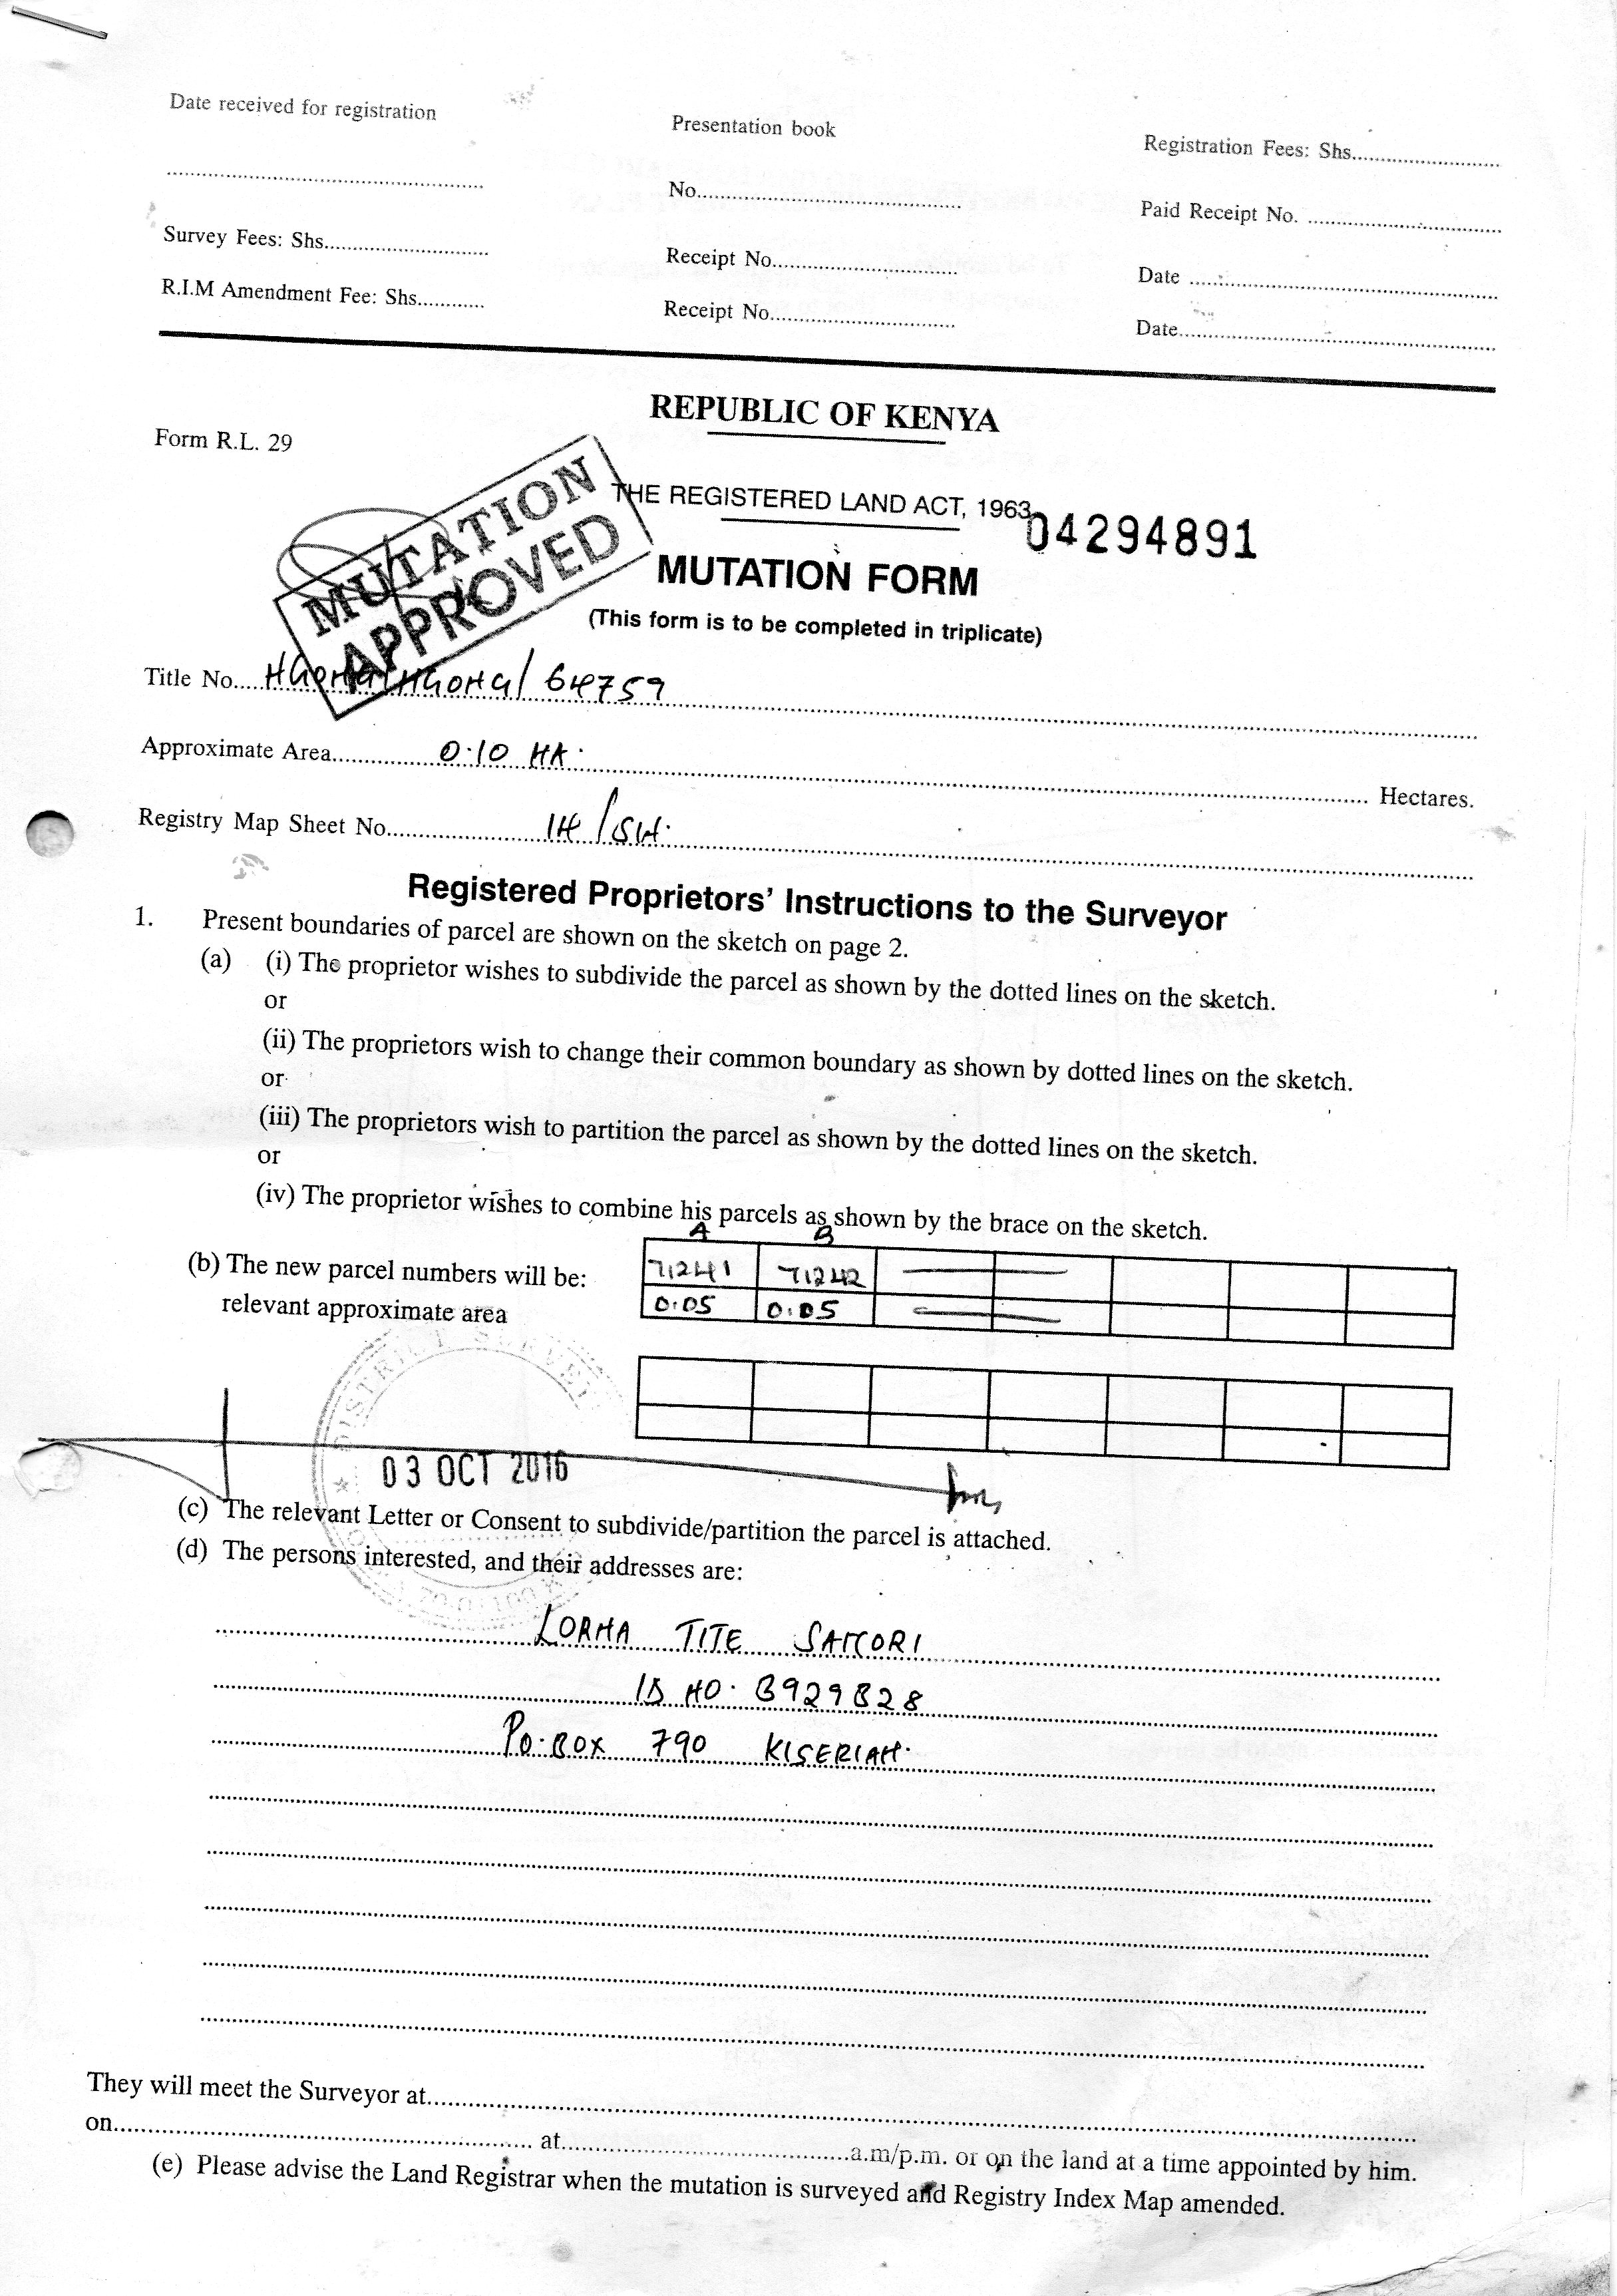 Date received for registration
Presentation book
Registration Fees: Shs
No
Paid Receipt No.
Survey Fees: Shs
Receipt No
Date
R.I.M Amendment Fee: Shs
Receipt No
Date
REPUBLIC OF KENYA
Form R.L. 29
THE REGISTERED LAND ACT, 1963
04294891
MUTATION APPROVED
MUTATION FORM
(This form is to be completed in triplicate)
Title No. NGONG/NGONG/ 64759
Approximate Area 0.10 HA. Hectares.
Registry Map Sheet No
Registered Proprietors' Instructions to the Surveyor
1. Present boundaries of parcel are shown on the sketch on page 2.
(a) (i) The proprietor wishes to subdivide the parcel as shown by the dotted lines on the sketch.
or
(ii) The proprietors wish to change their common boundary as shown by dotted lines on the sketch.
or
(iii) The proprietors wish to partition the parcel as shown by the dotted lines on the sketch.
or
(iv) The proprietor wishes to combine his parcels as shown by the brace on the sketch.
A B
(b) The new parcel numbers will be: 71241 71242
relevant approximate area 0.05 0.05
DISTRICT SURVEY
03 OCT 2016
(c) The relevant Letter or Consent to subdivide/partition the parcel is attached.
(d) The persons interested, and their addresses are:
LORNA TITE
ID NO. B929828
P.O. BOX 790 KISERIAN.
They will meet the Surveyor at
on at a.m/p.m. or on the land at a time appointed by him.
(e) Please advise the Land Registrar when the mutation is surveyed and Registry Index Map amended.